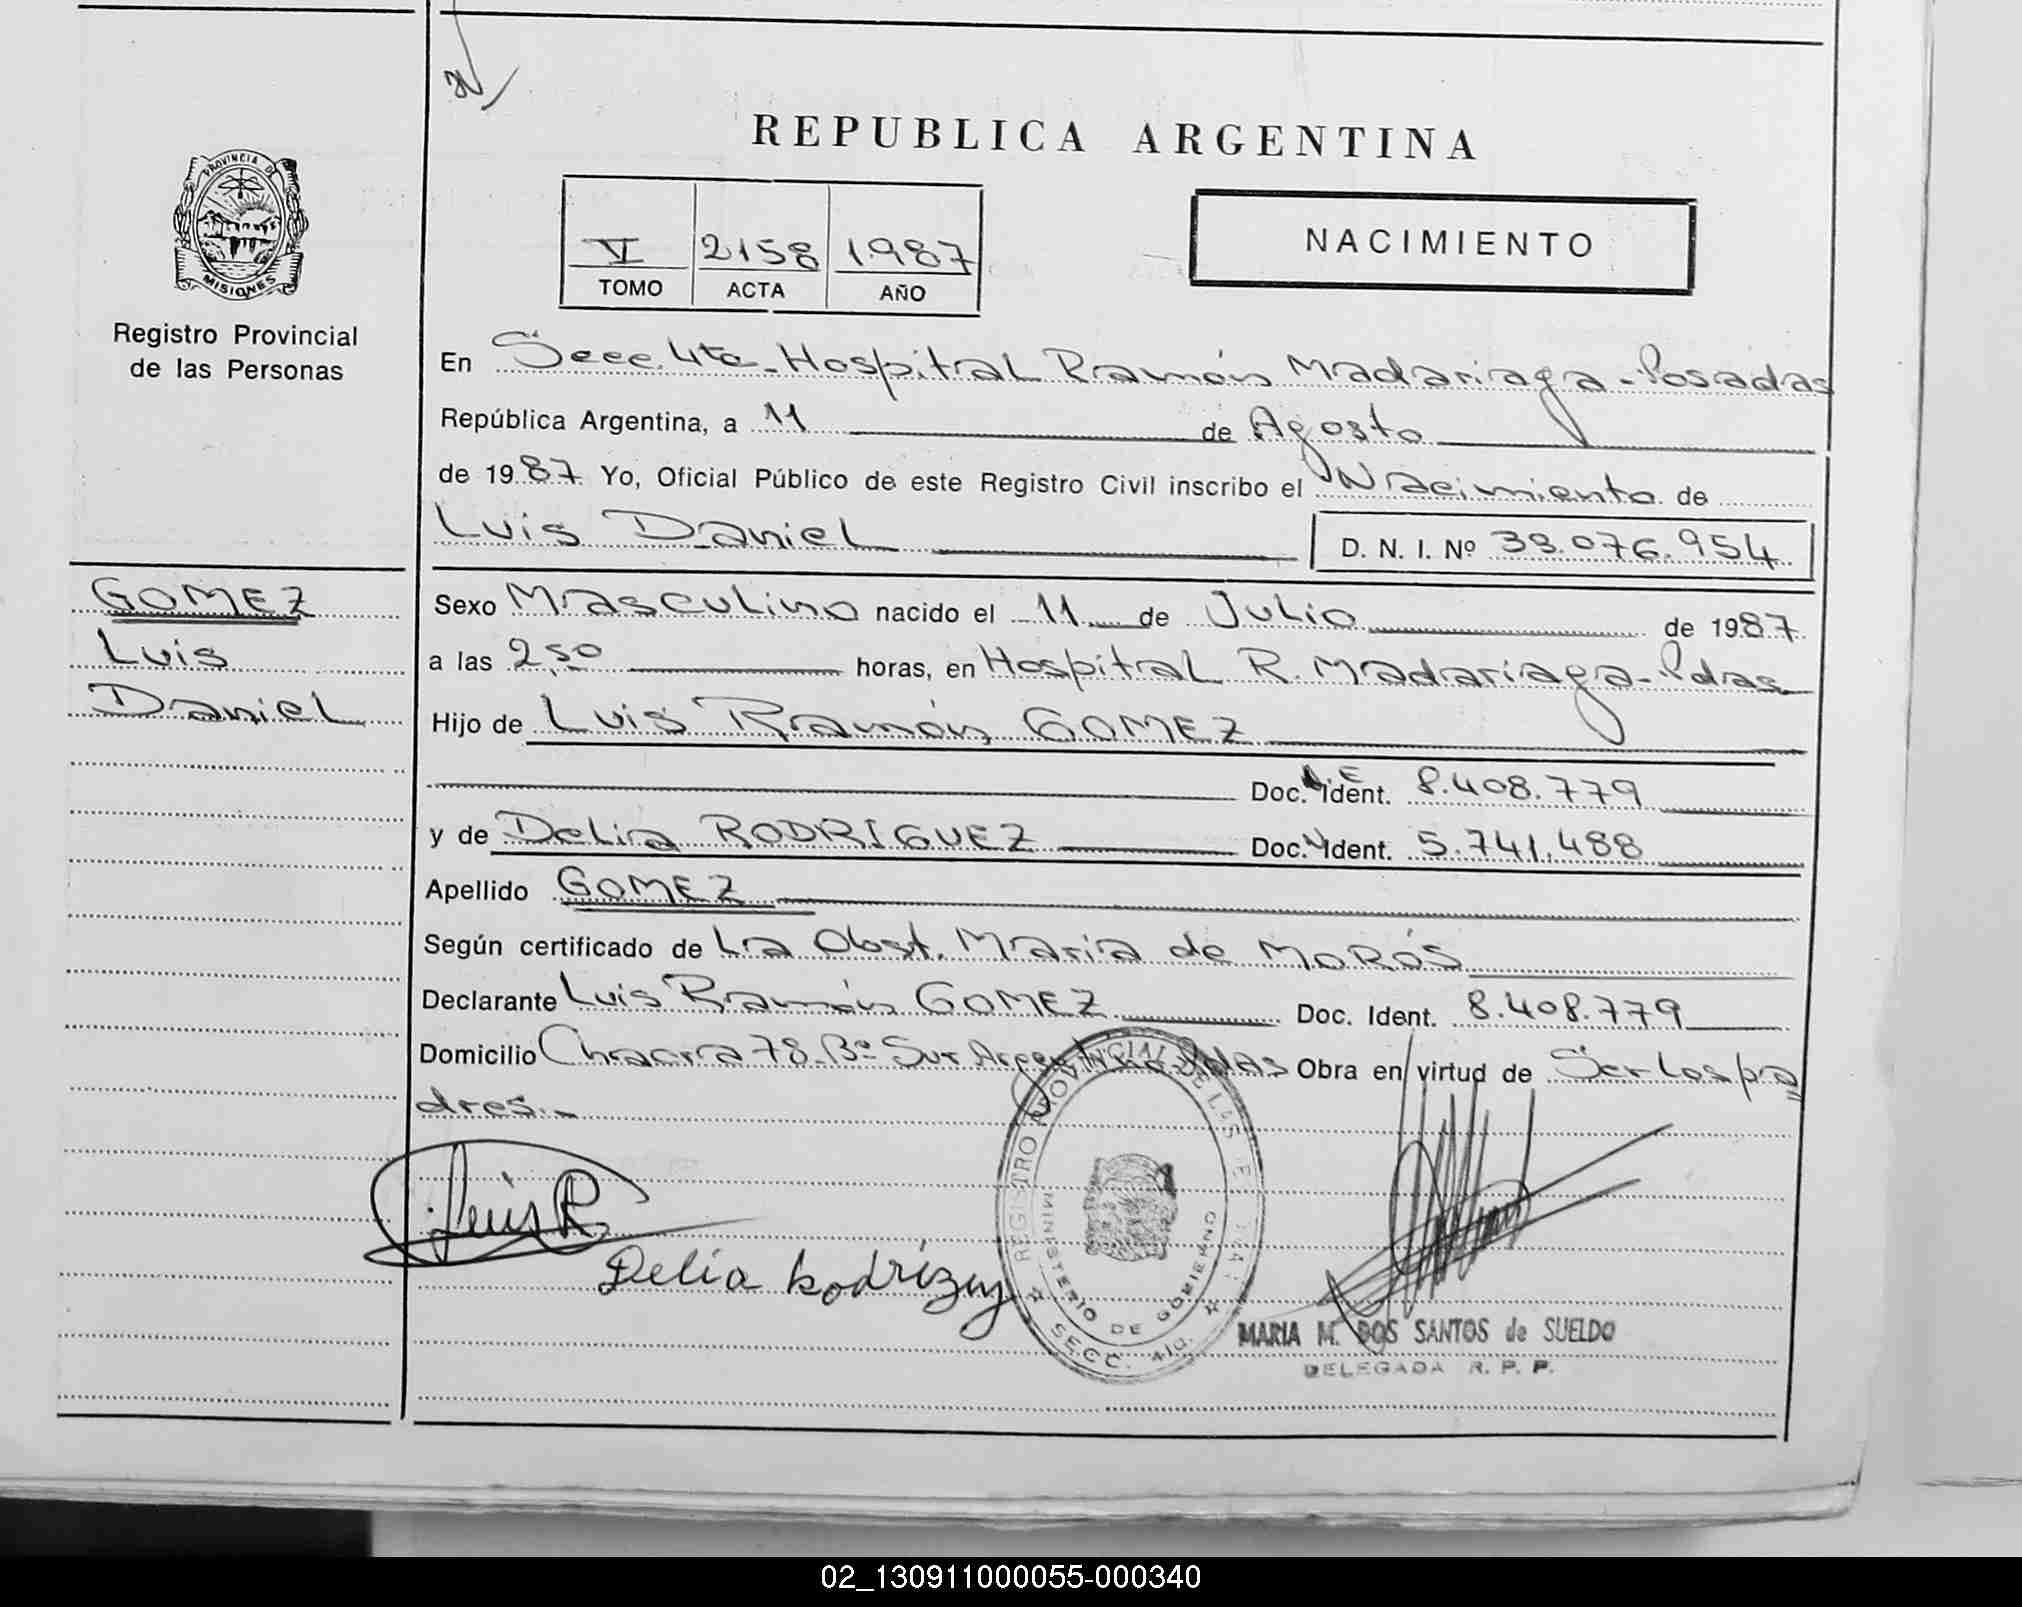 REPUBLICA ARGENTINA
PROVINCIA DE
MISIONES
Registro Provincial
de las Personas
VI 2158 1987
TOMO ACTA AÑO
NACIMIENTO
En Secc. 4ta - Hospital Ramón Madariaga - Posadas
República Argentina, a 11 de Agosto
de 1987. Yo, Oficial Público de este Registro Civil inscribo el Nacimiento de
Luis Daniel D. N. I. Nº 33.076.954
GOMEZ
Luis
Daniel
Sexo Masculino nacido el 11 de Julio de 1987.
a las 2,50 horas, en Hospital R. Madariaga - Pdas
Hijo de Luis Ramón GOMEZ
Doc. Ident. 8.408.779
y de Delia RODRIGUEZ Doc. Ident. 5.741.488
Apellido GOMEZ
Según certificado de La Obst. Maria de MORÓS
Declarante Luis Ramón GOMEZ Doc. Ident. 8.408.779
Domicilio Chacra 78 - Bº Sur Obra en virtud de Ser los pa
dres.-
Luis R
Delia Rodriguez
REGISTRO PROVINCIAL DE LAS
MINISTERIO DE GOBIERNO
SECC. 4ta.
MARIA M. DOS SANTOS de SUELDO
DELEGADA R. P. P.
02_130911000055-000340